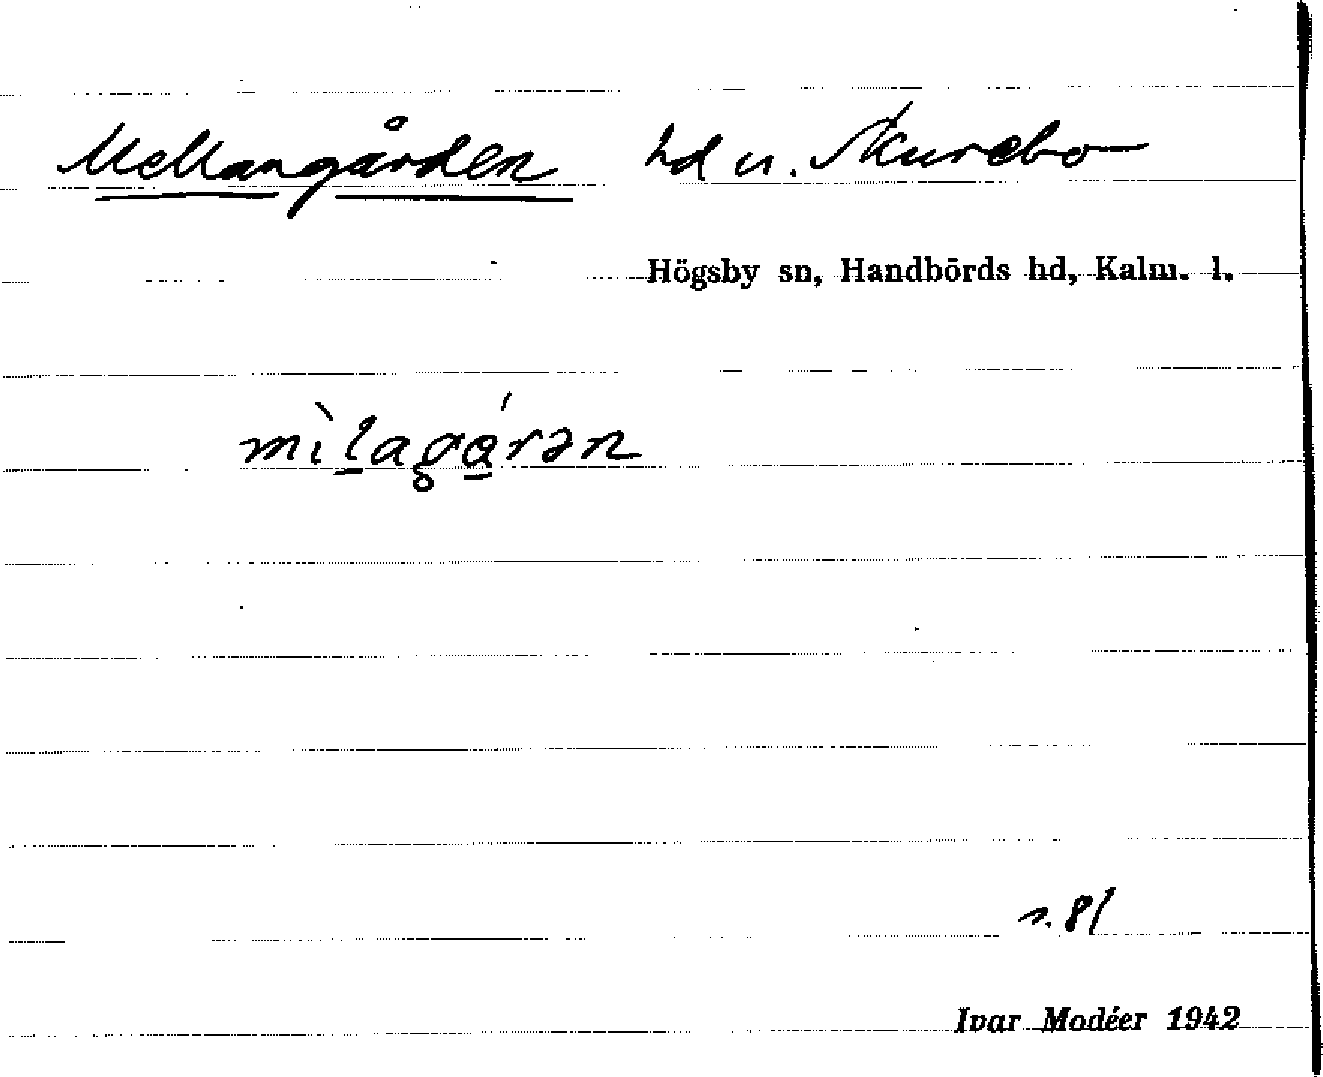 Mellangården hd u. Skurebo
Högsby sn, Handbörds hd, Kalm. l.
mìlagárən
s. 81
Ivar Modéer 1942